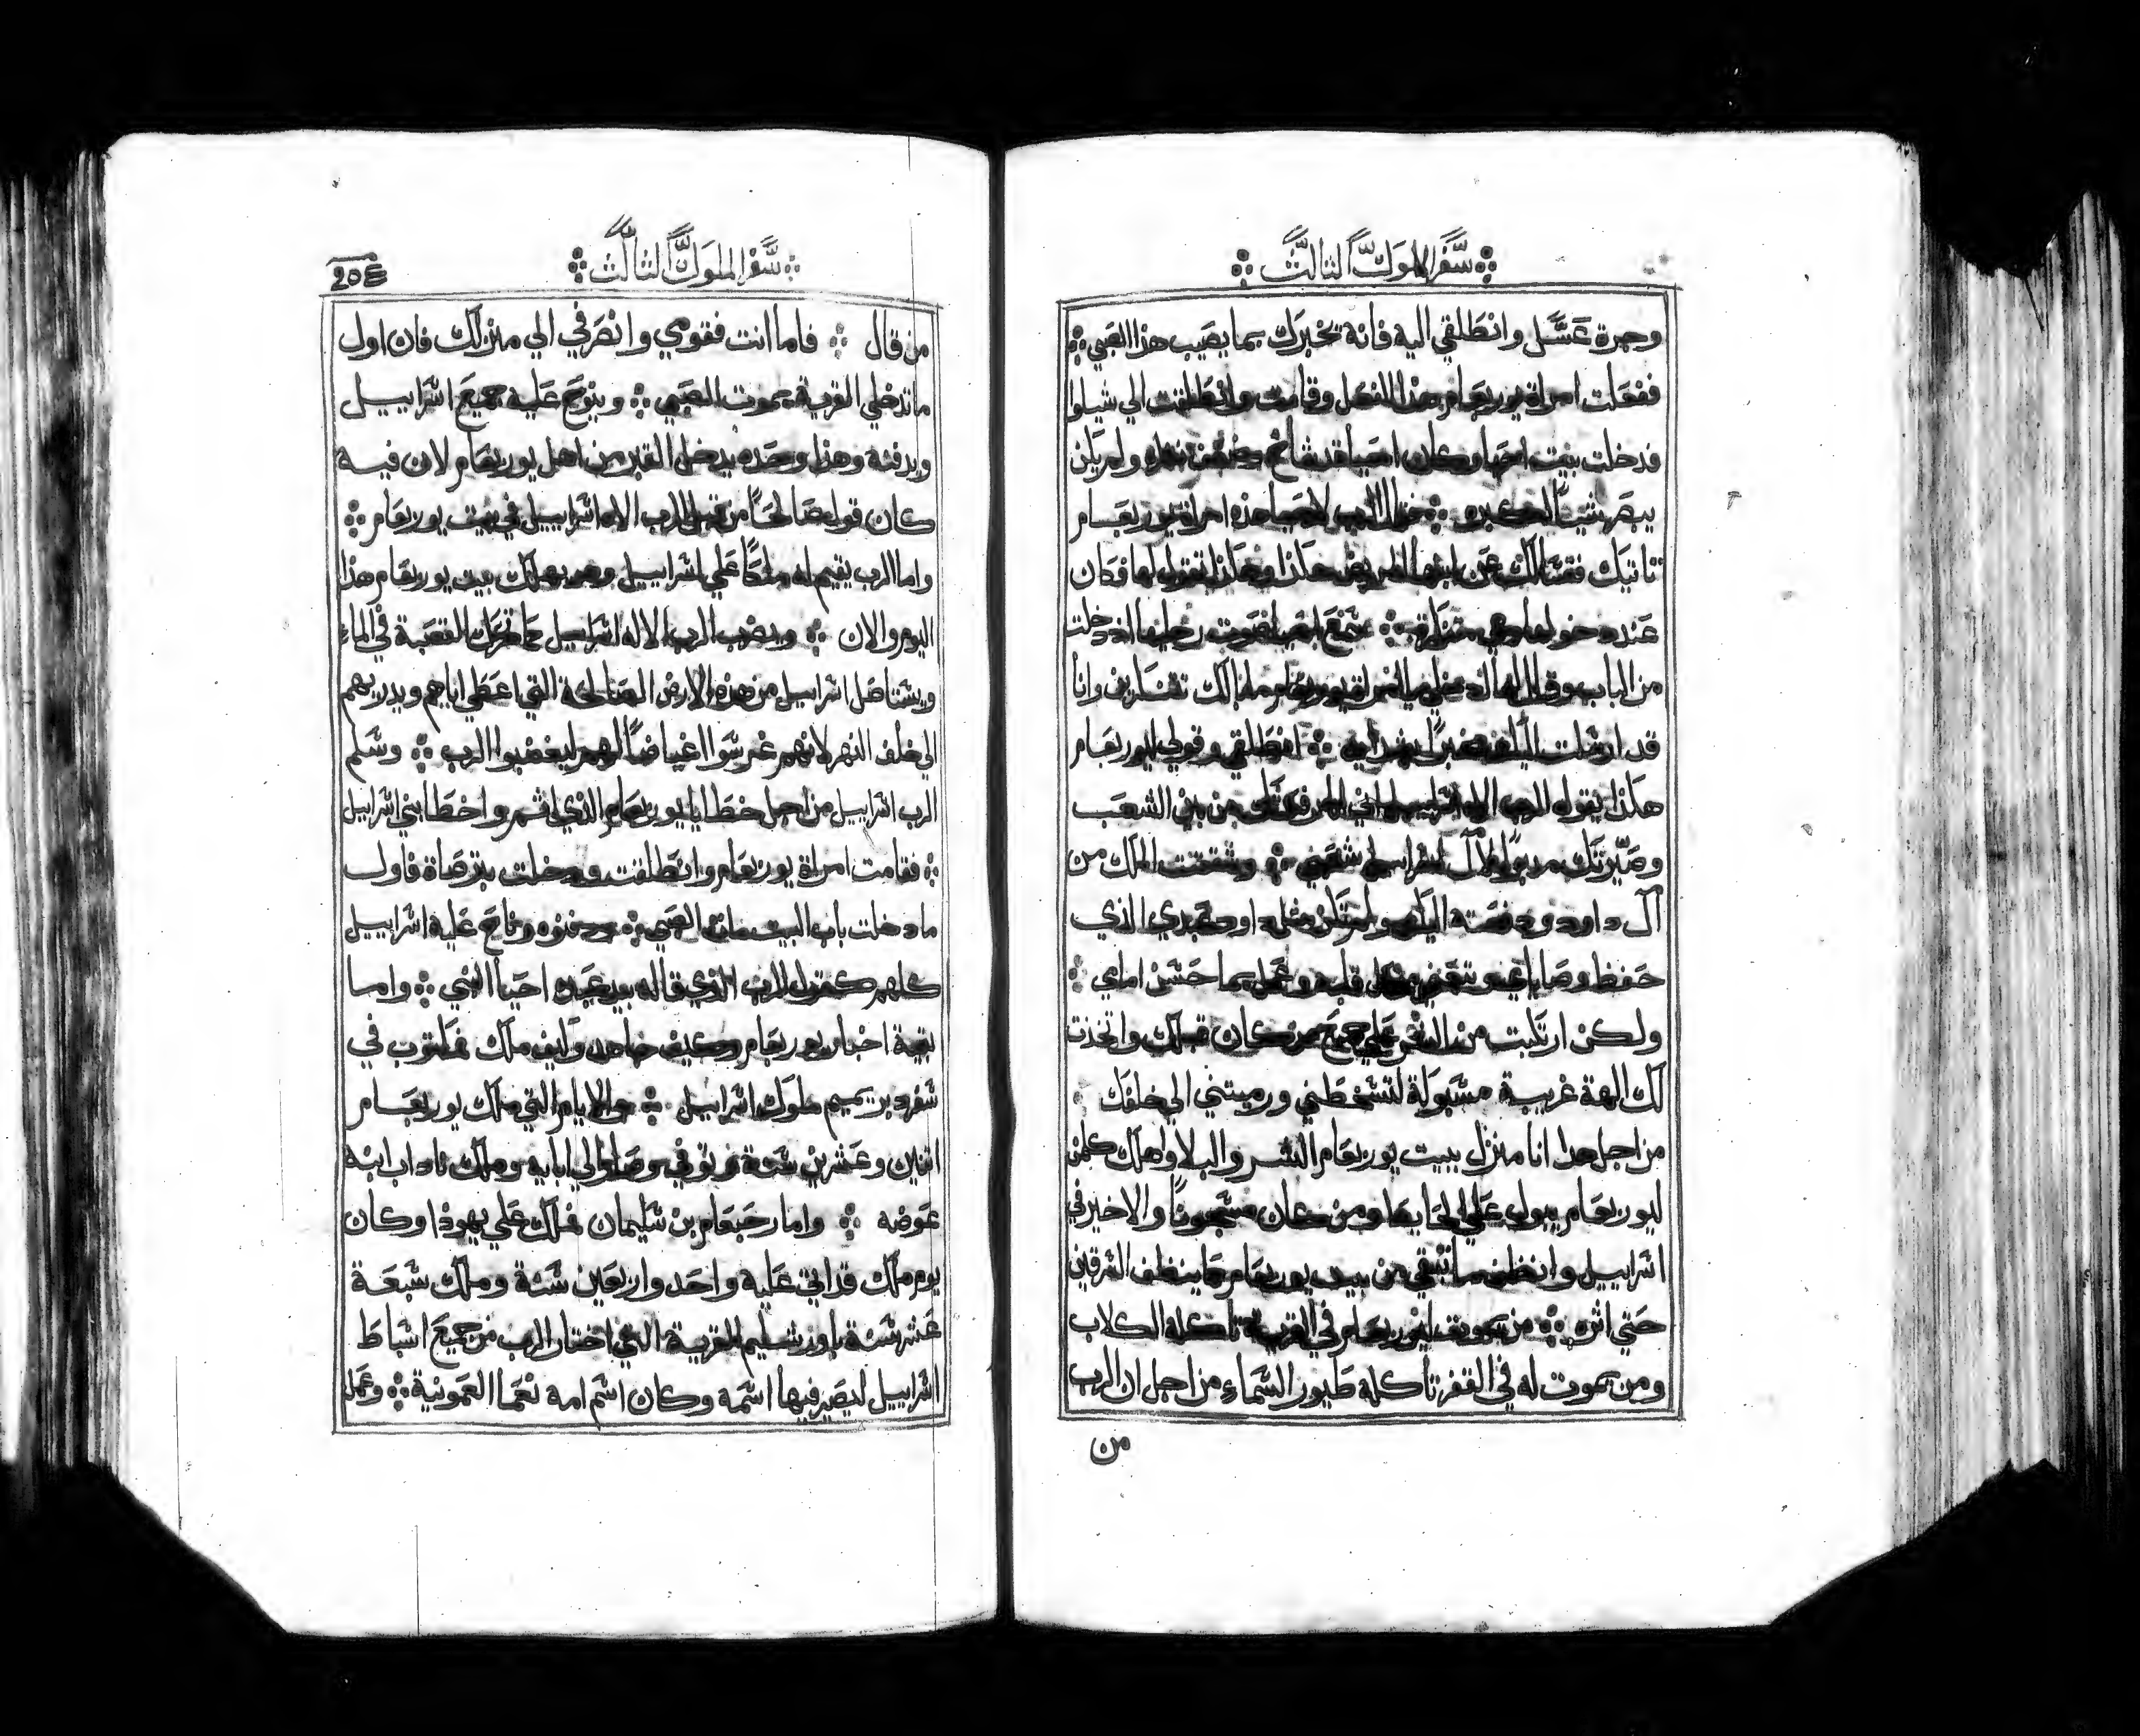 سفر الملوك الثالث
وجرة عسل وانطلقي اليه فانه يخبرك بما يصيب هذا الصبي
ففعلت امراة يوربعام هذا الفعل وقامت وانطلقت الي شيلوا
فدخلت بيت احيا وكان احيا قد شاخ ولم يكن
يبصر شيئا من كبره قال الرب لاحيا هذه امراة يوربعام
تاتيك فتسالك عن ابنها المريض هكذا وهكذا تقول لها فكان
عند دخولها وهي متنكرة سمع احيا صوت رجليها اذ دخلت
من الباب وقال لها ادخلي يا امراة يوربعام ما بالك تتنكرين وانا
قد ارسلت اليك انطلقي وقولي ليوربعام
هكذا يقول الرب اله اسراييل اني من بني الشعب
وصيرتك مدبرا لال اسراييل شعبي وشققت الملك من
آل داود ودفعته اليك ولم تكن مثل داود عبدي الذي
حفظ وصاياي قلبه وعمل بما حسن امامي
ولكن ارتكبت من الشر علي جميع من كان قبلك واتخذت
لك الهة غريبة مسبوكة لتسخطني ورميتني الي خلفك
من اجل هدا انا منزل ببيت يوربعام الشر والبلا واهلك كلمن
ليوربعام يبول علي الحايط ومن كان مسجونا والاخير في
اسراييل وانظف ما تبقي من بيت يوربعام كما ينظف الفرقين
حتي اثره من يموت ليوربعام في القرية تاكله الكلاب
ومن يموت له في القفر تاكله طيور السماء من اجل ان الرب
من
سفر الملوك الثالث
205
من قال فاما انت فقومي وانصرفي الي منزلك فان اول
ما تدخلي القرية يموت الصبي وينوح عليه جميع اسراييل
ويدفنه وهذا وحده يدخل القبر من اهل يوربعام لان فيه
كان قولا صالحا من قبل الرب الاه اسراييل في بيت يوربعام
واما الرب يقيم له ملكا علي اسراييل وهو يهلك بيت يوربعام هذا
اليوم والان ويضرب الرب الاله اسراييل كما تحرك القصبة في الماء
ويستاصل اسراييل من هذه الارض الصالحة التي اعطي اباهم ويدريهم
الي خلف النهر لانهم غرسوا اغياضا لهم ليغضبوا الرب وسلم
الرب اسراييل من اجل خطايا يوربعام الذي اثمر واخطا بني اسراييل
فقامت امراة يوربعام وانطلقت ودخلت بترصاة فاول
ما دخلت باب البيت مات الصبي ودفنوه وناح عليه اسراييل
كلهم كقول الرب الذي قاله بيد عبده احيا النبي واما
بقية اخبار يوربعام وكيف جاهد وكيف ملك مكتوب في
سفر دبريميم ملوك اسراييل والايام التي ملك يوربعام
اتنين وعشرين سنة وتوفي وصار الي ابايه وملك ناداب ابنه
عوضه واما رحبعام بن سليمان فملك علي يهوذا وكان
يوم ملك قد اتي عليه واحد واربعين سنة وملك سبعة
عشر سنة باورشليم القرية التي اختار الرب من جميع اسباط
اسراييل ليصير فيها اسمه وكان اسم امه نعما العمونية وعمل